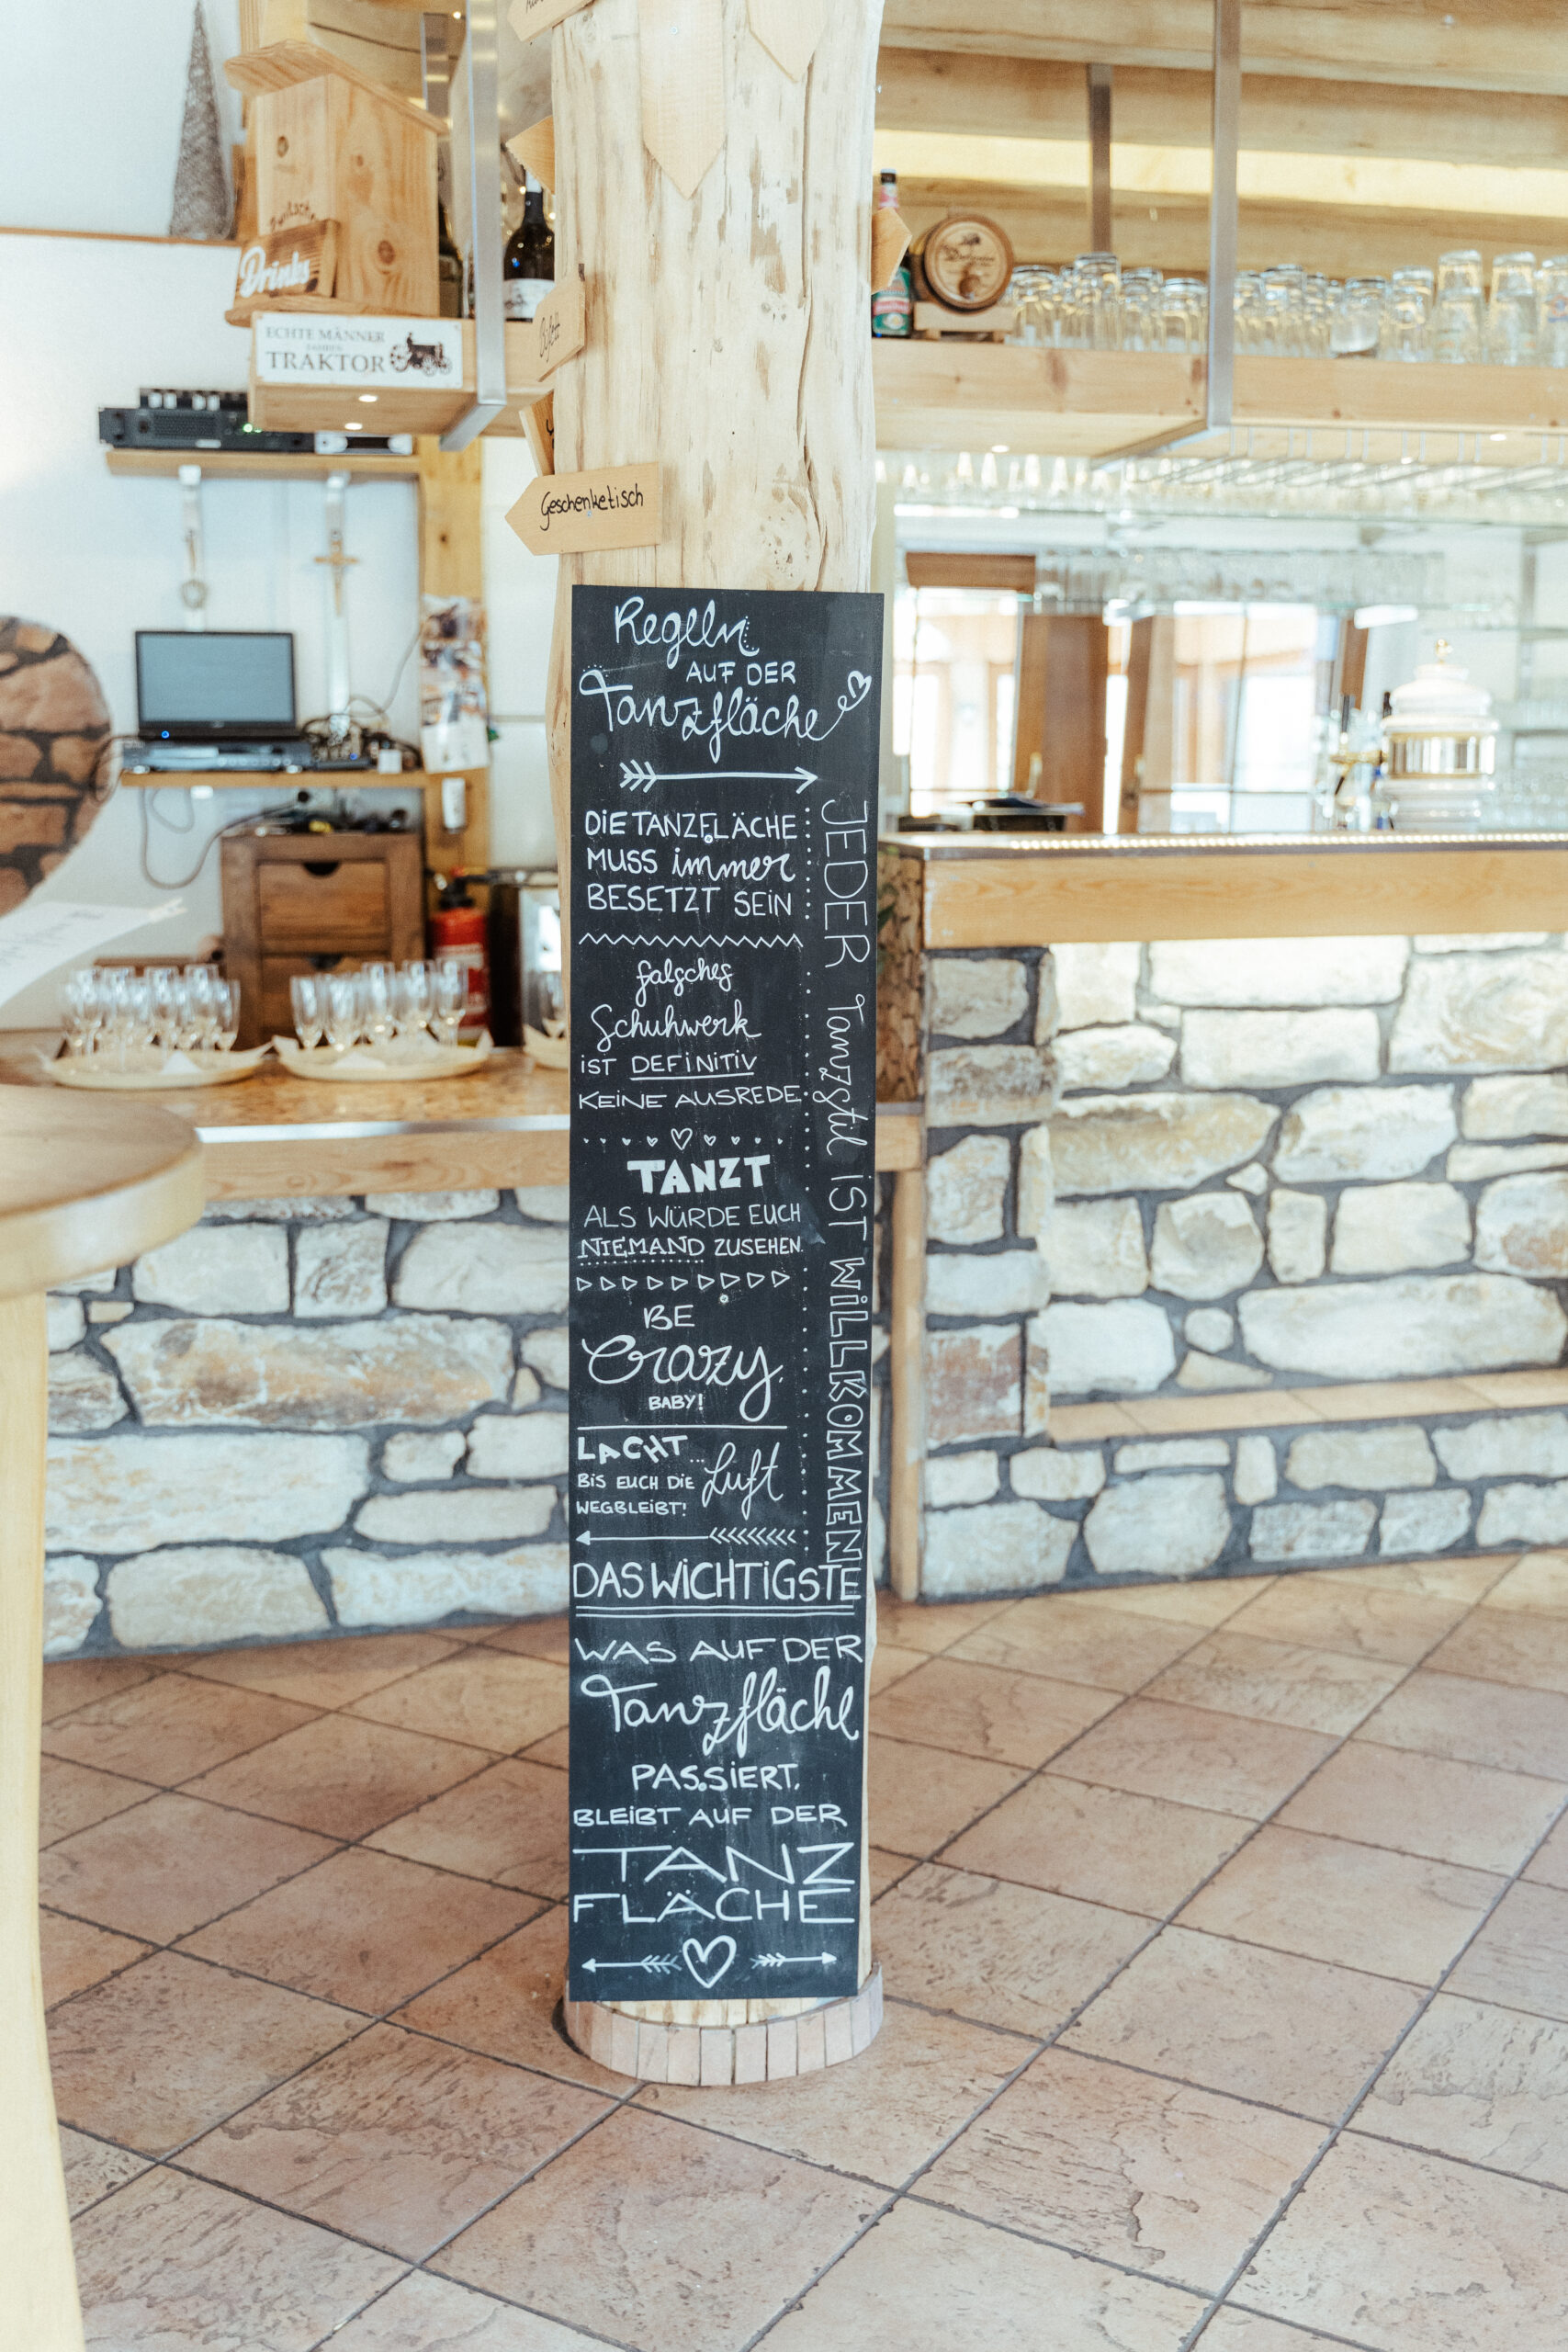 Drinks
ECHTE MÄNNER
FAHREN
TRAKTOR
Geschenketisch
Regeln
AUF DER
Tanzfläche
DIE TANZFLÄCHE
MUSS immer
BESETZT SEIN
falsches
Schuhwerk
IST DEFINITIV
KEINE AUSREDE
TANZT
ALS WÜRDE EUCH
NIEMAND ZUSEHEN
BE
Crazy
BABY!
LACHT...
BIS EUCH DIE Luft
WEGBLEIBT!
JEDER Tanzstil IST WILLKOMMEN
DAS WICHTIGSTE
WAS AUF DER
Tanzfläche
PASSIERT,
BLEIBT AUF DER
TANZ
FLÄCHE